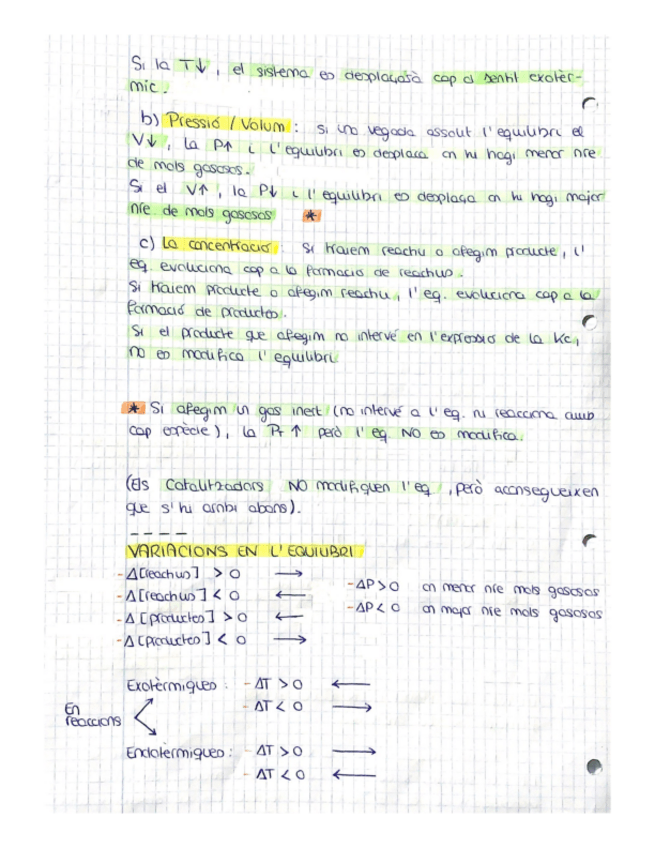 Si la T↓, el sistema es desplaçarà cap al sentit exotèr-
mic.
b) Pressió / Volum: si una vegada assolit l'equilibri el
V↓, la P↑ i l'equilibri es desplaça on hi hagi menor nre
de mols gasosos.
Si el V↑, la P↓ i l'equilibri es desplaça on hi hagi major
nre de mols gasosos *
c) La concentració: Si traiem reactiu o afegim producte, l'
eq. evoluciona cap a la formació de reactius.
Si traiem producte o afegim reactiu, l'eq. evoluciona cap a la
formació de productes.
Si el producte que afegim no intervé en l'expressió de la Kc,
no es modifica l'equilibri
* Si afegim un gas inert (no intervé a l'eq. ni reacciona amb
cap espècie), la Pt ↑ però l'eq. NO es modifica.
(Els Catalitzadors NO modifiquen l'eq, però aconsegueixen
que s'hi arribi abans).
----
VARIACIONS EN L'EQUILIBRI
- Δ[reactius] > 0 →
- Δ[reactius] < 0 ←
- Δ[productes] > 0 ←
- Δ[productes] < 0 →
- ΔP > 0 on menor nre mols gasosos
- ΔP < 0 on major nre mols gasosos
En
reaccions
Exotèrmiques: - ΔT > 0 ←
- ΔT < 0 →
Endotèrmiques: - ΔT > 0 →
- ΔT < 0 ←